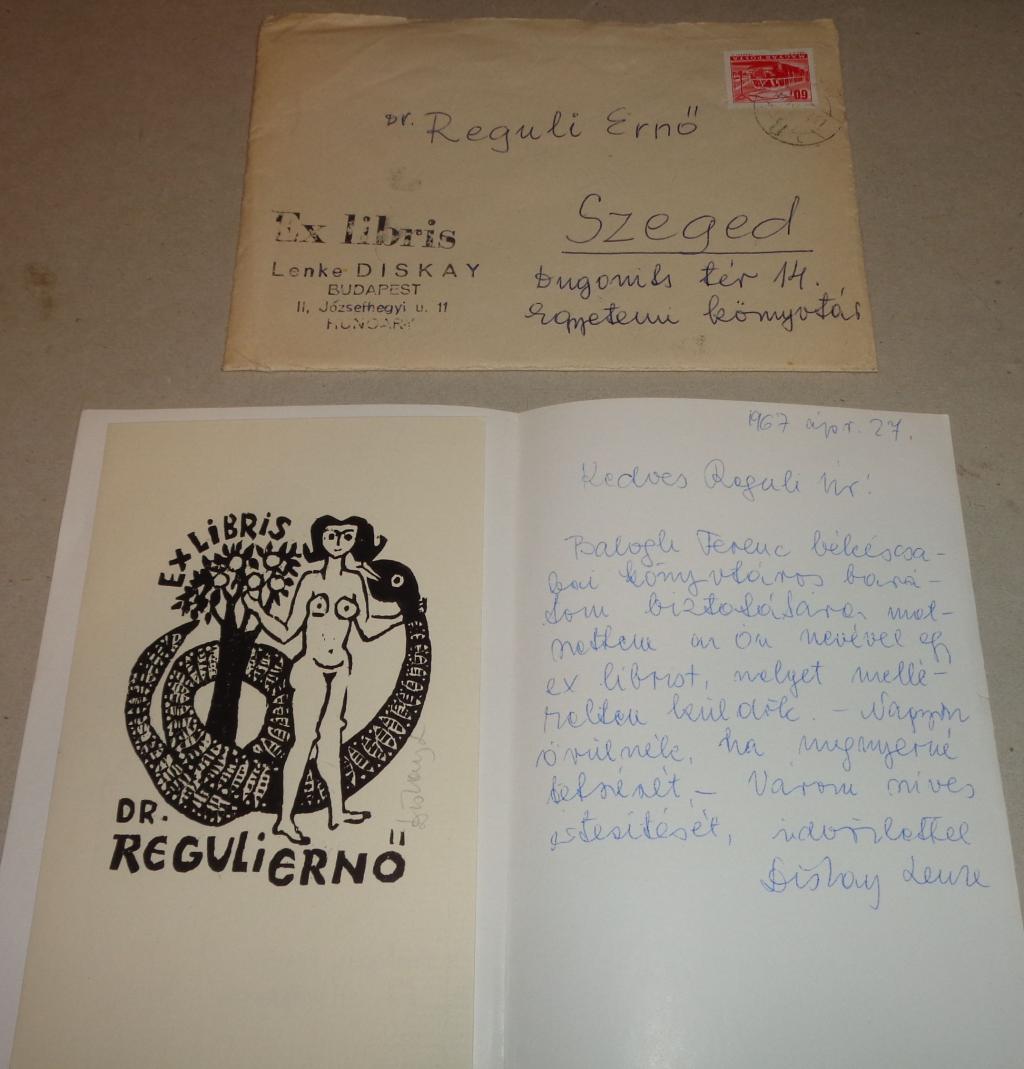 MAGYAR POSTA
60
Dr. Reguli Ernő
Szeged
Dugonits tér 14.
Egyetemi könyvtár
Ex libris
Lenke DISKAY
BUDAPEST
II, Józsefhegyi u. 11
HUNGARY
EX LiBRiS
DR.
REGULiERNŐ
Diskay L
1967 ápr. 27.
Kedves Reguli Úr!
Balogh Ferenc békéscsa-
bai könyvtáros bará-
tom biztatására met-
szettem az Ön nevével egy
ex librist, melyet mellé-
kelten küldök. – Nagyon
örülnék, ha megnyerné
tetszését, – Várom szíves
értesítését, üdvözlettel
Diskay Lenke